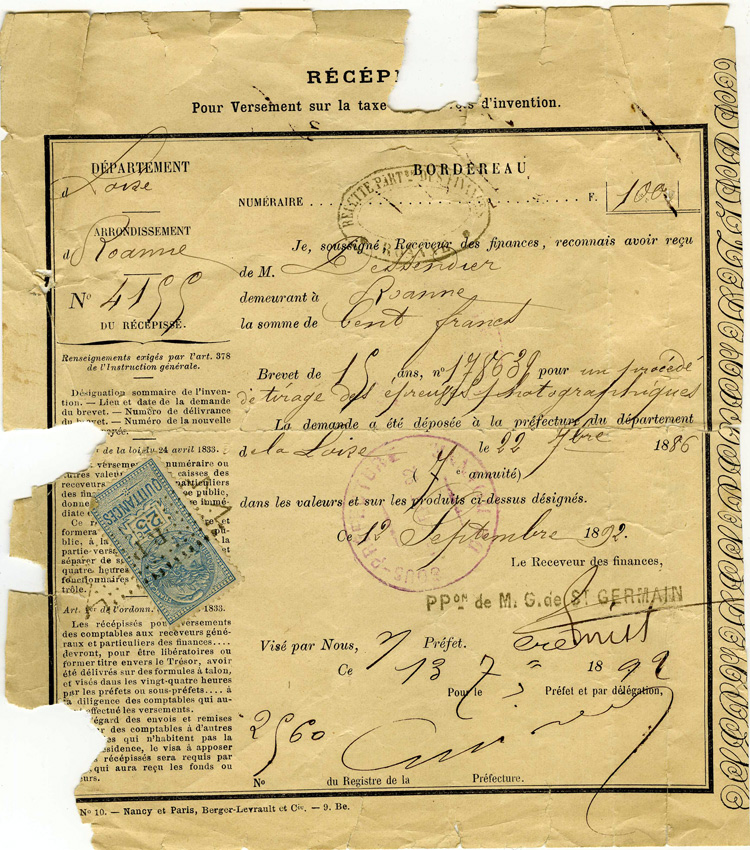 RÉCÉPI
Pour Versement sur la taxe d'invention.
DÉPARTEMENT
d Loire
ARRONDISSEMENT
d Roanne
No 4155
DU RÉCÉPISSÉ.
Renseignements exigés par l'art. 378
de l'Instruction générale.
Désignation sommaire de l'inven-
tion. — Lieu et date de la demande
du brevet. — Numéro de délivrance
du brevet. — Numéro de la nouvelle
de la loi du 24 avril 1833.
versement numéraire ou
autres valeurs caisses des
receveurs particuliers
des fin ce public,
donne immé-
diate
Ce ré et
formera
blic, à la
partie-vers
séparer de
quatre heures
fonctionnaires
trôle.
Art. 1er de l'ordonn. 1833.
Les récépissés pour versements
des comptables aux receveurs géné-
raux et particuliers des finances....
devront, pour être libératoires ou
former titre envers le Trésor, avoir
été délivrés sur des formules à talon,
et visés dans les vingt-quatre heures
par les préfets ou sous-préfets.... à
la diligence des comptables qui au-
effectué les versements.
égard des envois et remises
par des comptables à d'autres
qui n'habitent pas la
résidence, le visa à apposer
récépissés sera requis par
qui aura reçu les fonds ou
eurs.
QUITTANCES
25
BORDEREAU
NUMÉRAIRE F. 100
RECETTE PARTre DES FINANCES
ROANNE
Je, soussigné, Receveur des finances, reconnais avoir reçu
de M. Dessendier
demeurant à Roanne
la somme de Cent francs
Brevet de 15 ans, no 178639 pour un procédé
de tirage des épreuves photographiques
La demande a été déposée à la préfecture du département
de la Loire le 22 7bre 1886
(7e annuité)
dans les valeurs et sur les produits ci-dessus désignés.
SOUS-PRÉFECTURE
Ce 12 Septembre 1892.
Le Receveur des finances,
PPon de M. G. de ST GERMAIN
Visé par Nous, Préfet.
Ce 13 7 1892
Pour le Préfet et par délégation,
2560
No du Registre de la Préfecture.
No 10. — Nancy et Paris, Berger-Levrault et Cie. — 9. Be.